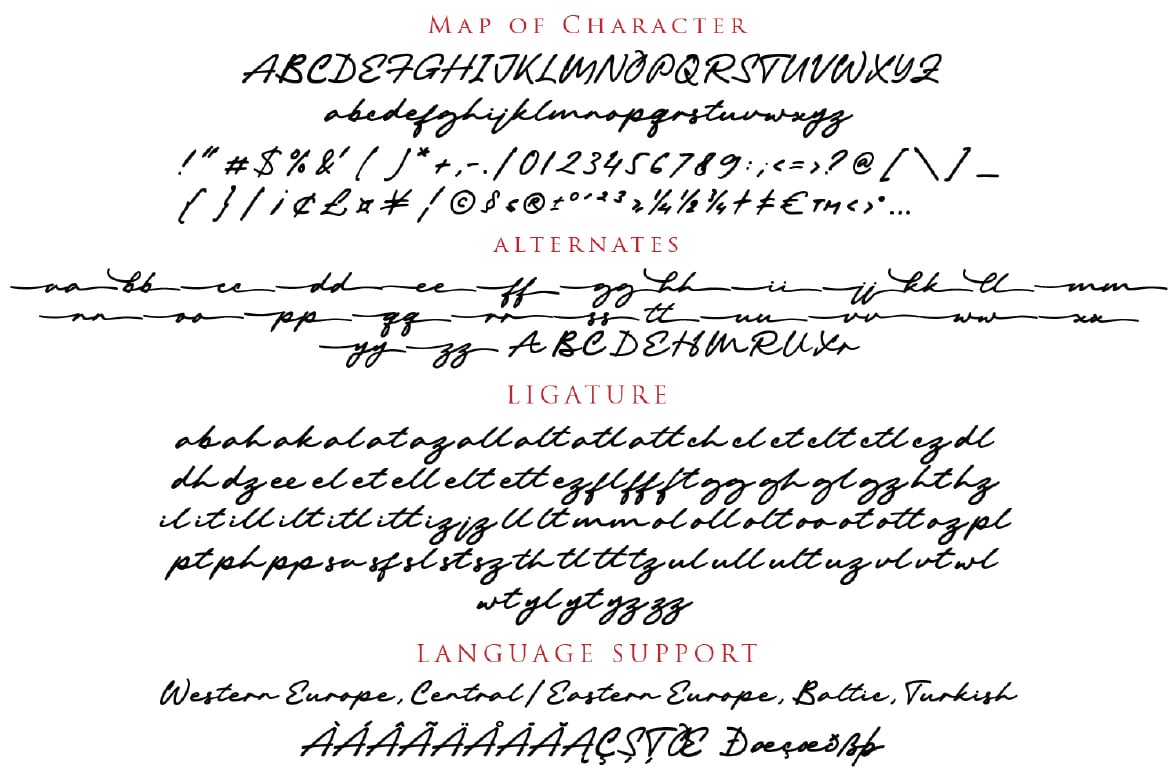 Map of Character
ABCDEFGHIJKLMNOPQRSTUVWXYZ
abcdefghijklmnopqrstuvwxyz
!"#$%&'()*+,-./0123456789:;<=>?@[\]_
{}|¡¢£¤¥¦©§«®±°¹²³»¼½¾†‡€™‹›•…
ALTERNATES
aa bb cc dd ee ff gg hh ii jj kk ll mm
nn oo pp qq rr ss tt uu vv ww xx
yy zz A B C D E H M R U X r
LIGATURE
ab ah ak al at az all alt atl att ch cl ct clt ctl cz dl
dh dz ee el et ell elt ett ez fl ff ft gg gh gl gz ht hz
il it ill ilt itl itt iz jz ll lt mm ol oll olt oo ot ott oz pl
pt ph pp sa sf sl st sz th tl tt tz ul ull ult uz vl vt wl
wt yl yt yz zz
LANGUAGE SUPPORT
Western Europe, Central/Eastern Europe, Baltic, Turkish
ÀÁÂÃÄÅĀĂĄÇŞŢŒ Ðœçæðßþ